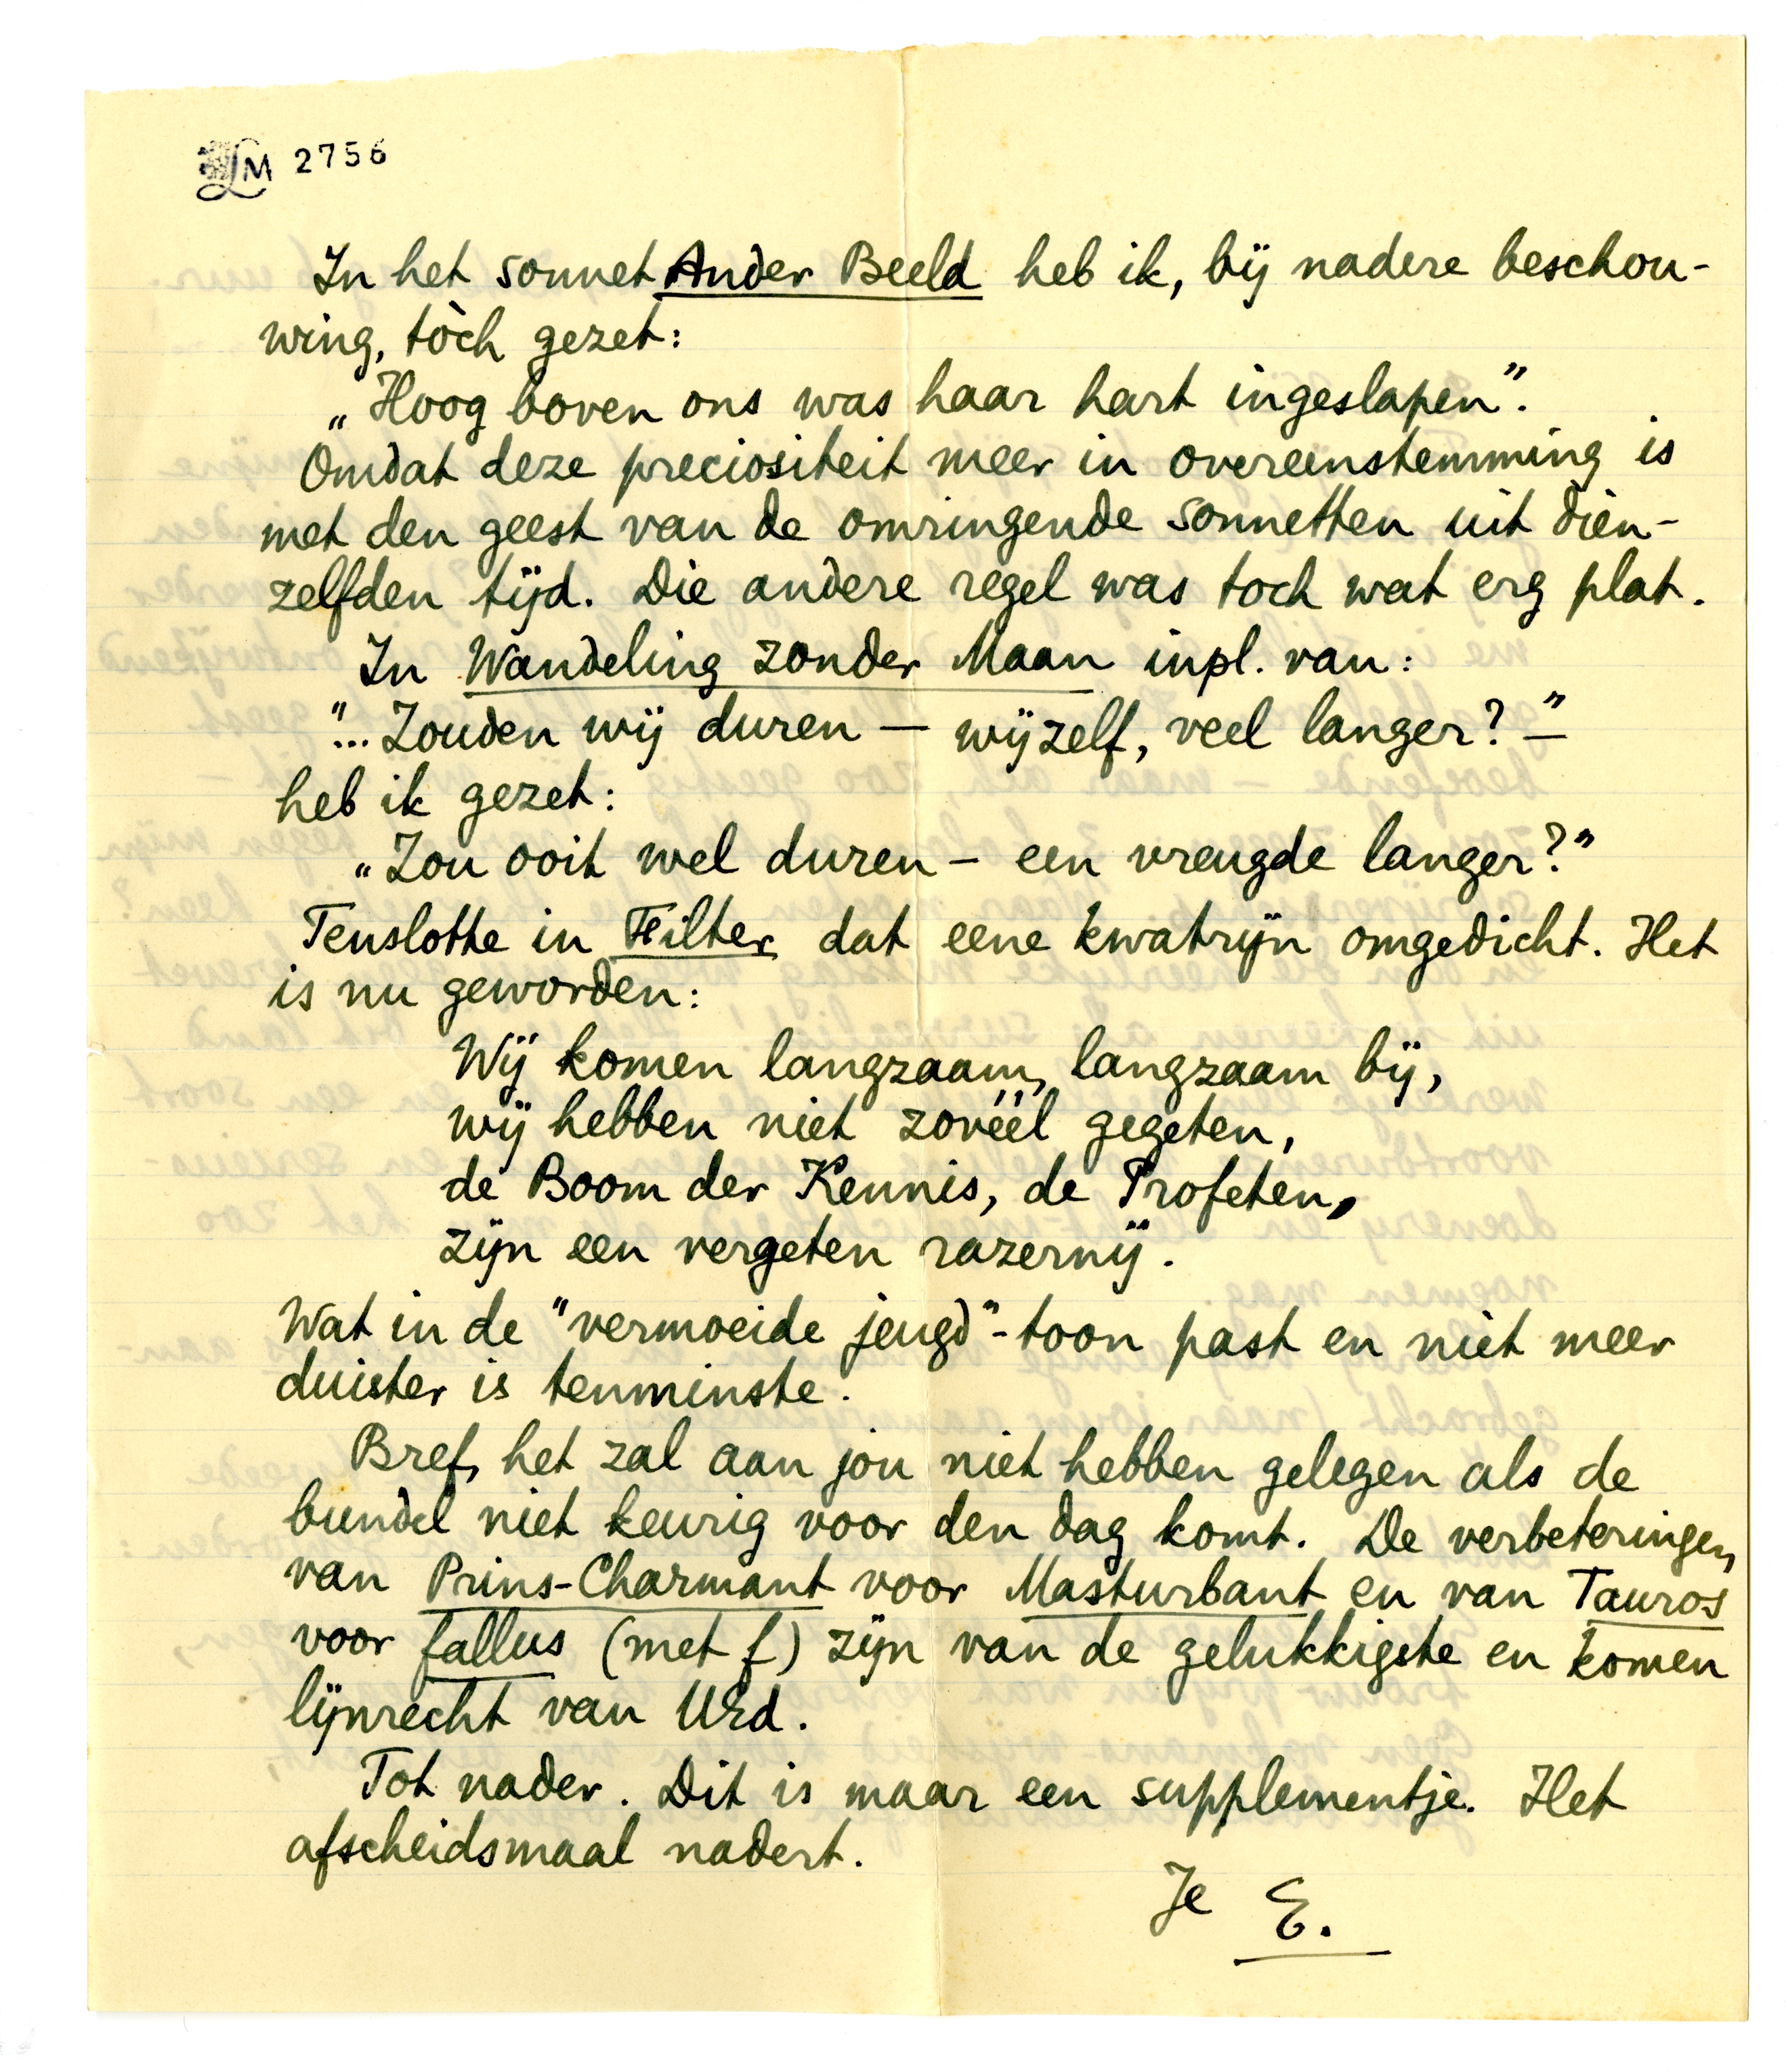 LM 2756
In het sonnet Ander Beeld heb ik, bij nadere beschou-
wing, tòch gezet:
„Hoog boven ons was haar hart ingeslapen”.
Omdat deze preciositeit meer in overeenstemming is
met den geest van de omringende sonnetten uit dien-
zelfden tijd. Die andere regel was toch wat erg plat.
In Wandeling zonder Maan inpl. van:
"... Zouden wij duren — wijzelf, veel langer? —"
heb ik gezet:
„Zou ooit wel duren – een vreugde langer?”
Tenslotte in Filter dat eene kwatrijn omgedicht. Het
is nu geworden:
Wij komen langzaam, langzaam bij,
wij hebben niet zovéél gegeten,
de Boom der Kennis, de Profeten,
zijn een vergeten razernij.
Wat in de "vermoeide jeugd"-toon past en niet meer
duister is tenminste.
Bref, het zal aan jou niet hebben gelegen als de
bundel niet keurig voor den dag komt. De verbeteringen
van Prins-Charmant voor Masturbant en van Tauros
voor fallus (met f) zijn van de gelukkigste en komen
lijnrecht van Urd.
Tot nader. Dit is maar een supplementje. Het
afscheidsmaal nadert.
Je E.